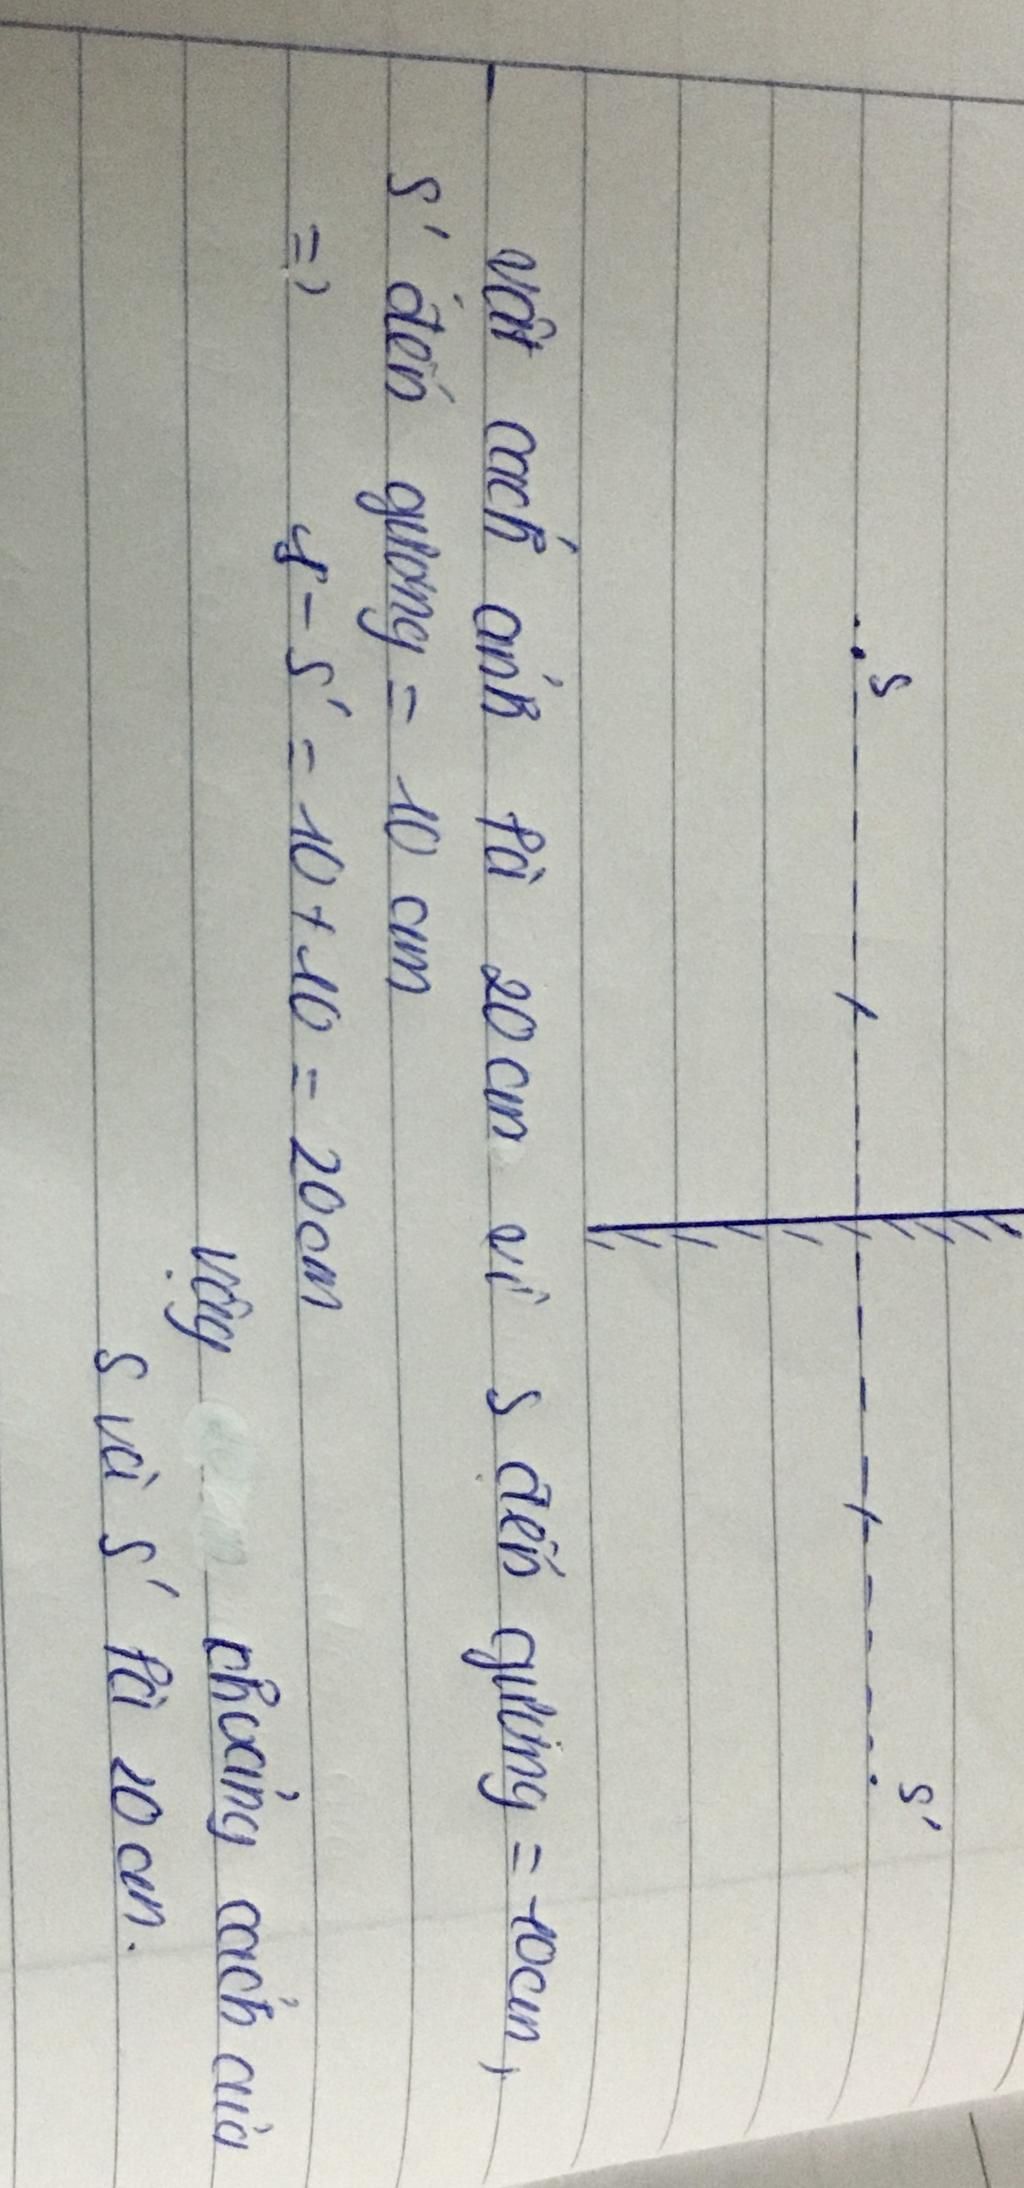 S S'
Vật cách ảnh là 20cm vì S đến gương = 10cm,
S' đến gương = 10 cm
=> S - S' = 10 + 10 = 20cm
Vậy khoảng cách của
S và S' là 20 cm.